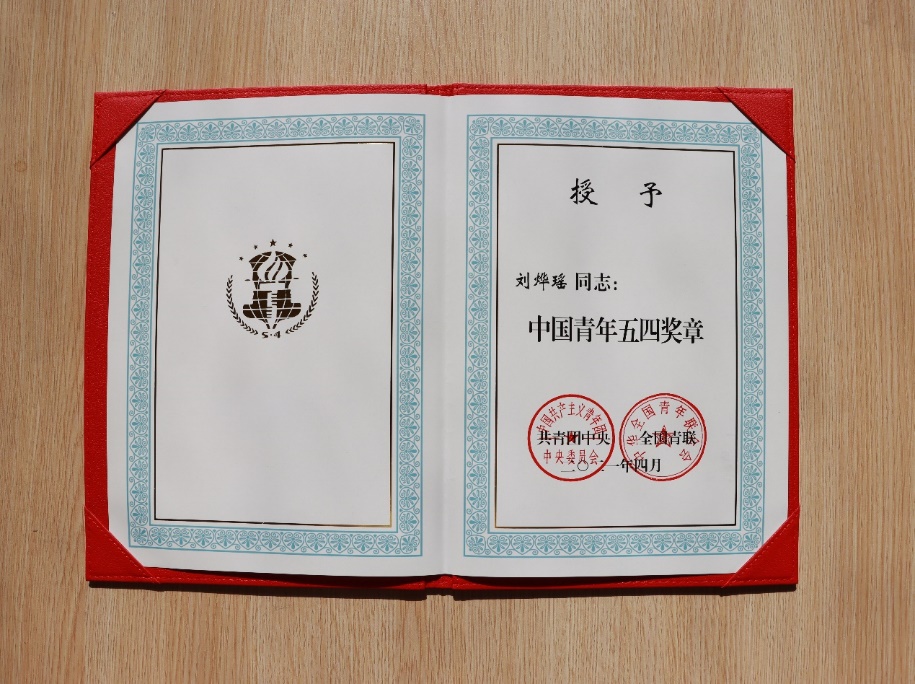 5·4
授 予
刘烨瑶 同志:
中国青年五四奖章
共青团中央 全国青联
二〇二一年四月
中国共产主义青年团
中央委员会
中华全国青年联合会